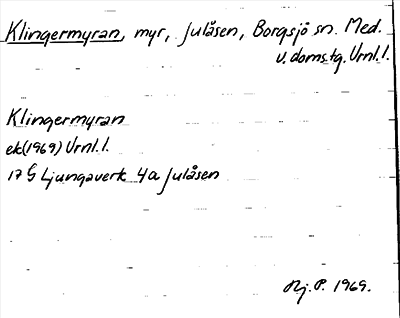 Klingermyran, myr, Julåsen, Borgsjö sn. Med.
v. doms.tg. Vrnl. l.
Klingermyran
ek(1969) Vrnl. l.
17 G Ljungaverk 4a Julåsen
Hj. P. 1969.